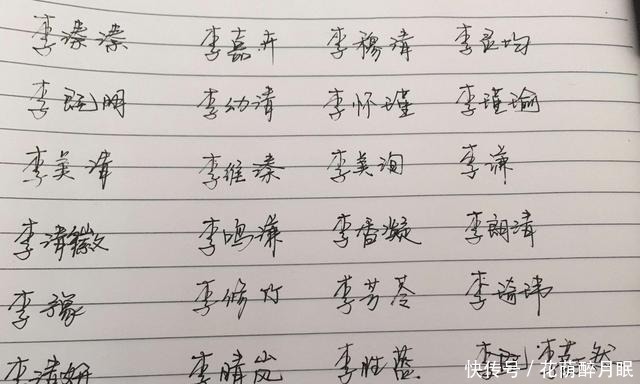 李溱溱 李嘉卉 李穆清 李灵均
李幼清 李怀瑾 李瑾瑜
李美清 李维溱 李美洵 李谦
李清徽 李鸣谦 李香凝 李朗清
李豫 李修竹 李芳苓 李琦玮
李清妍 李晴岚 李胜蓝
快传号/花荫醉月眠